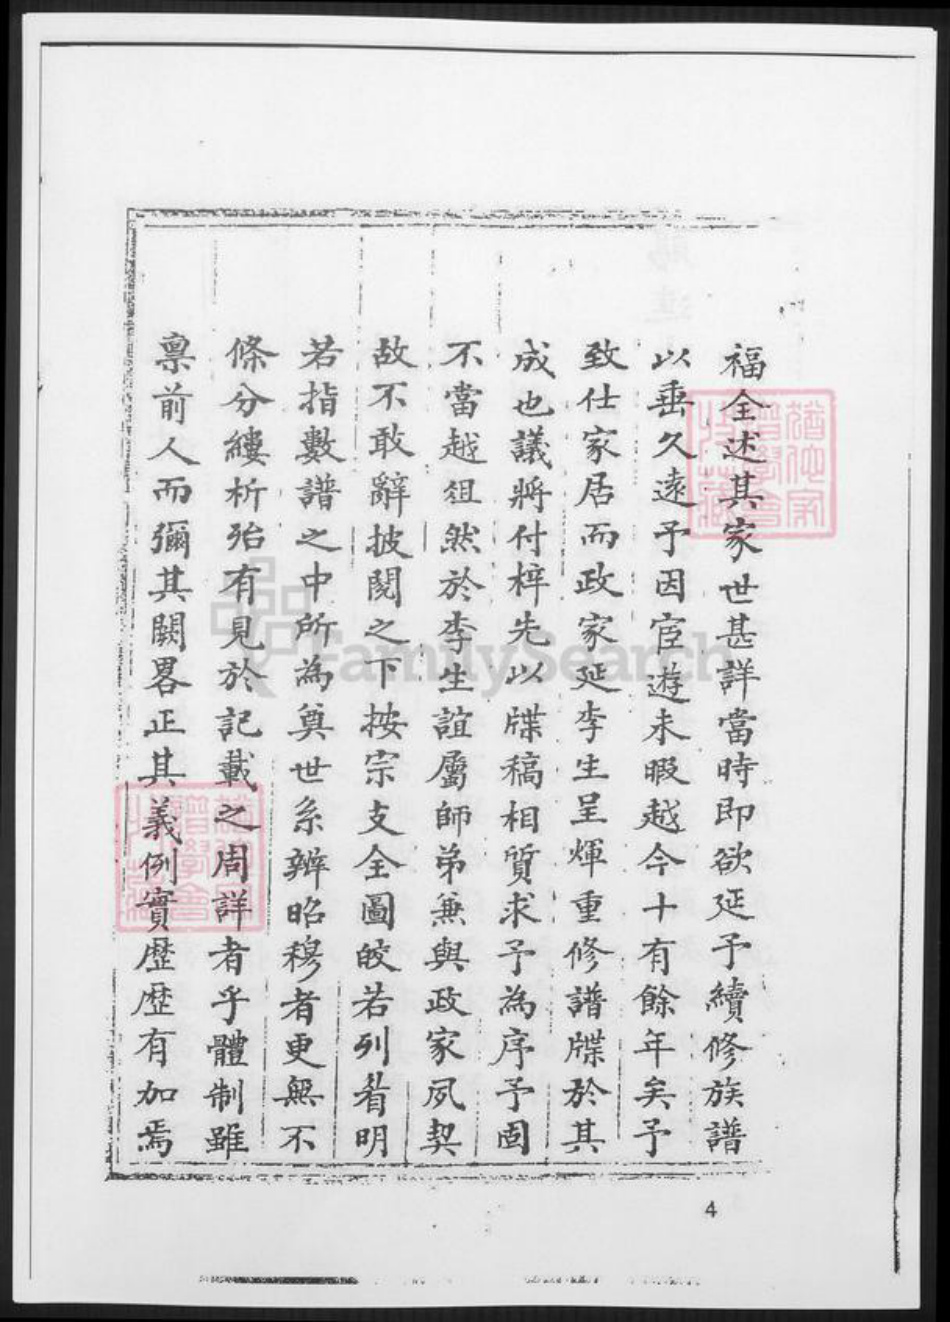 福全述其家世甚詳當時即欲延予續修族譜
以垂久遠予因宦遊未暇越今十有餘年矣予
致仕家居而政家延李生呈煇重修譜牒於其
成也議將付梓先以牒稿相質求予為序予固
不當越俎然於李生誼屬師弟兼與政家夙契
故不敢辭披閱之下按宗支全圖皎若列眉明
若指數譜之中所為奠世系辨昭穆者更無不
條分縷析殆有見於記載之周詳者乎體制雖
稟前人而彌其闕畧正其義例實歷歷有加焉
4
FamilySearch